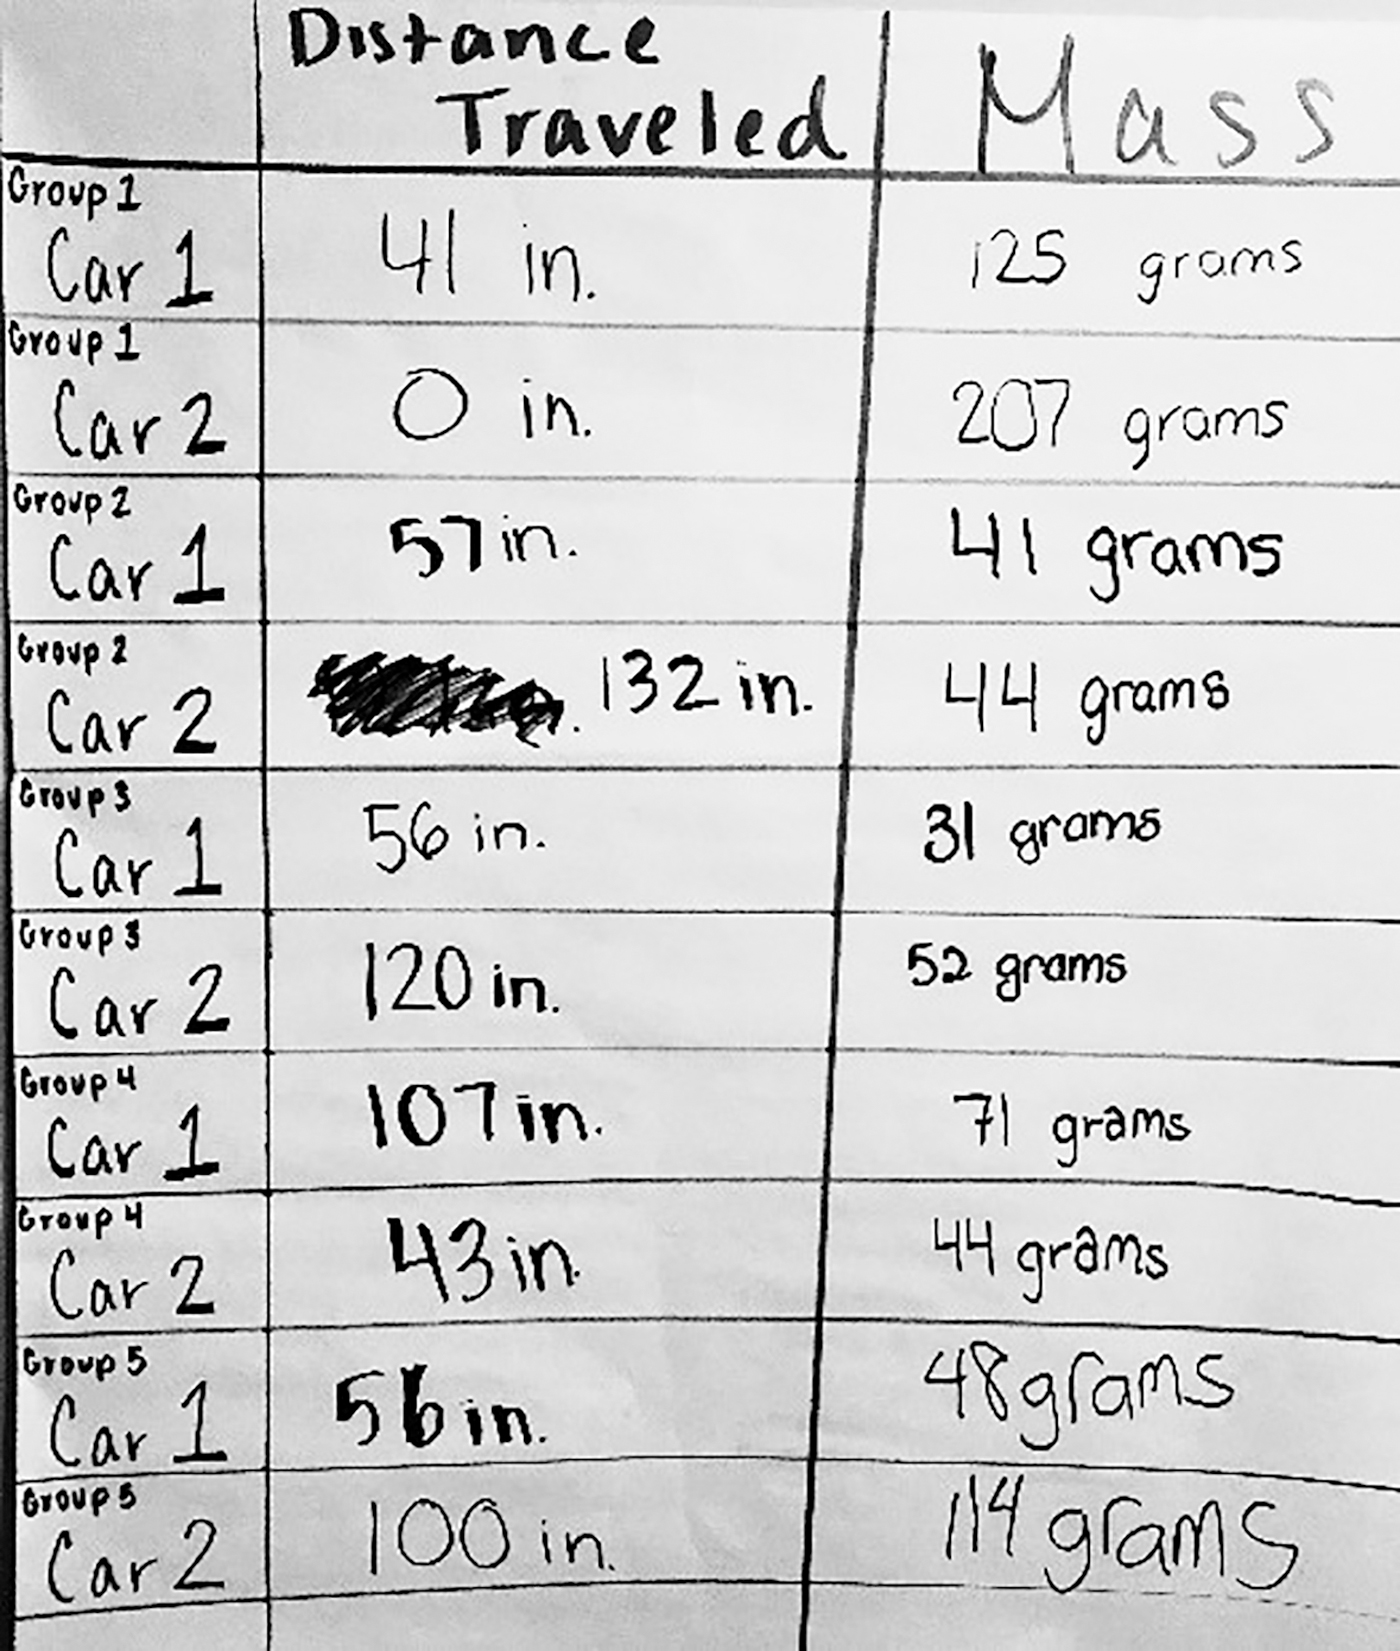 Distance
Traveled Mass
Group 1
Car 1 41 in. 125 grams
Group 1
Car 2 0 in. 207 grams
Group 2
Car 1 57 in. 41 grams
Group 2
Car 2 132 in. 44 grams
Group 3
Car 1 56 in. 31 grams
Group 3
Car 2 120 in. 52 grams
Group 4
Car 1 107 in. 71 grams
Group 4
Car 2 43 in. 44 grams
Group 5
Car 1 56 in. 48 grams
Group 5
Car 2 100 in. 114 grams